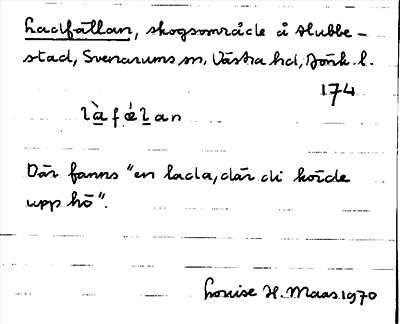 Ladfållan, skogsområde å Slubbe-
stad, Svenarums sn, Västra hd, Jönk. l.
174
là̱fɇḻan
Där fanns "en lada, där di körde
upp hö".
Louise H. Maas 1970